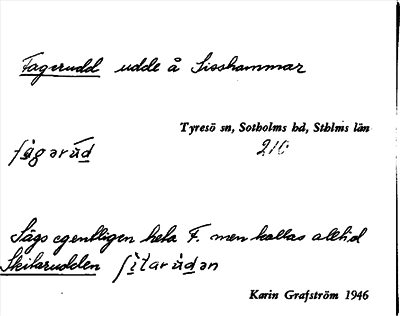 Fagerudd udde å Sisshammar
Tyresö sn, Sotholms hd, Sthlms län
210
Sägs egentligen heta F. men kallas alltid
Skitarudden
Karin Grafström 1946